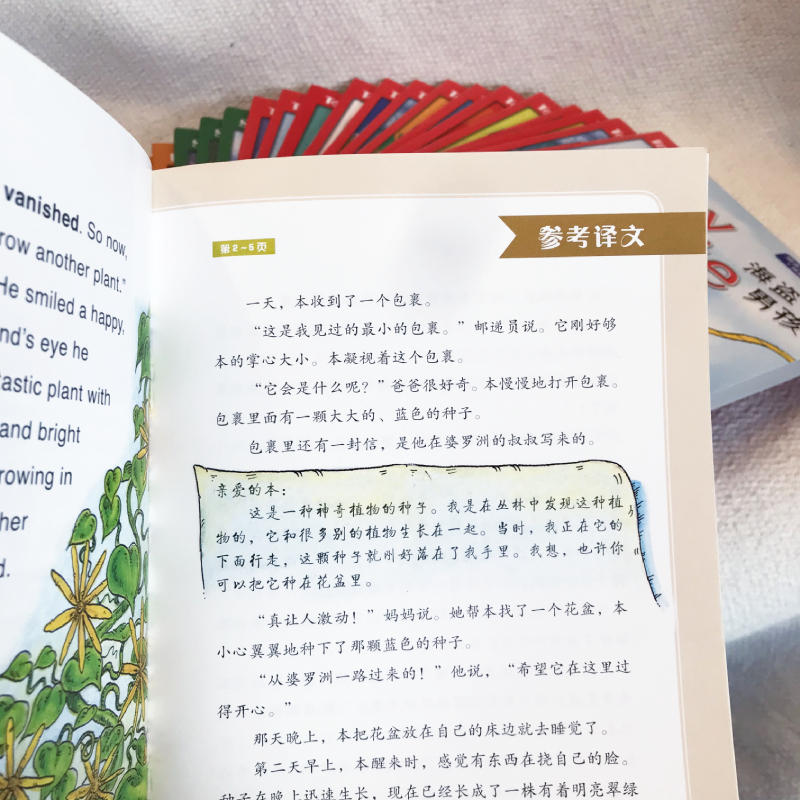 vanished. So now,
row another plant."
He smiled a happy,
nd's eye he
tastic plant with
and bright
rowing in
her
d.
第2~5页
参考译文
一天，本收到了一个包裹。
“这是我见过的最小的包裹。”邮递员说。它刚好够
本的掌心大小。本凝视着这个包裹。
“它会是什么呢？”爸爸很好奇。本慢慢地打开包裹。
包裹里面有一颗大大的、蓝色的种子。
包裹里还有一封信，是他在婆罗洲的叔叔写来的。
亲爱的本：
这是一种神奇植物的种子。我是在丛林中发现这种植
物的，它和很多别的植物生长在一起。当时，我正在它的
下面行走，这颗种子就刚好落在了我手里。我想，也许你
可以把它种在花盆里。
“真让人激动！”妈妈说。她帮本找了一个花盆，本
小心翼翼地种下了那颗蓝色的种子。
“从婆罗洲一路过来的！”他说，“希望它在这里过
得开心。”
那天晚上，本把花盆放在自己的床边就去睡觉了。
第二天早上，本醒来时，感觉有东西在挠自己的脸。
种子在晚上迅速生长，现在已经长成了一株有着明亮翠绿
海盗
男孩